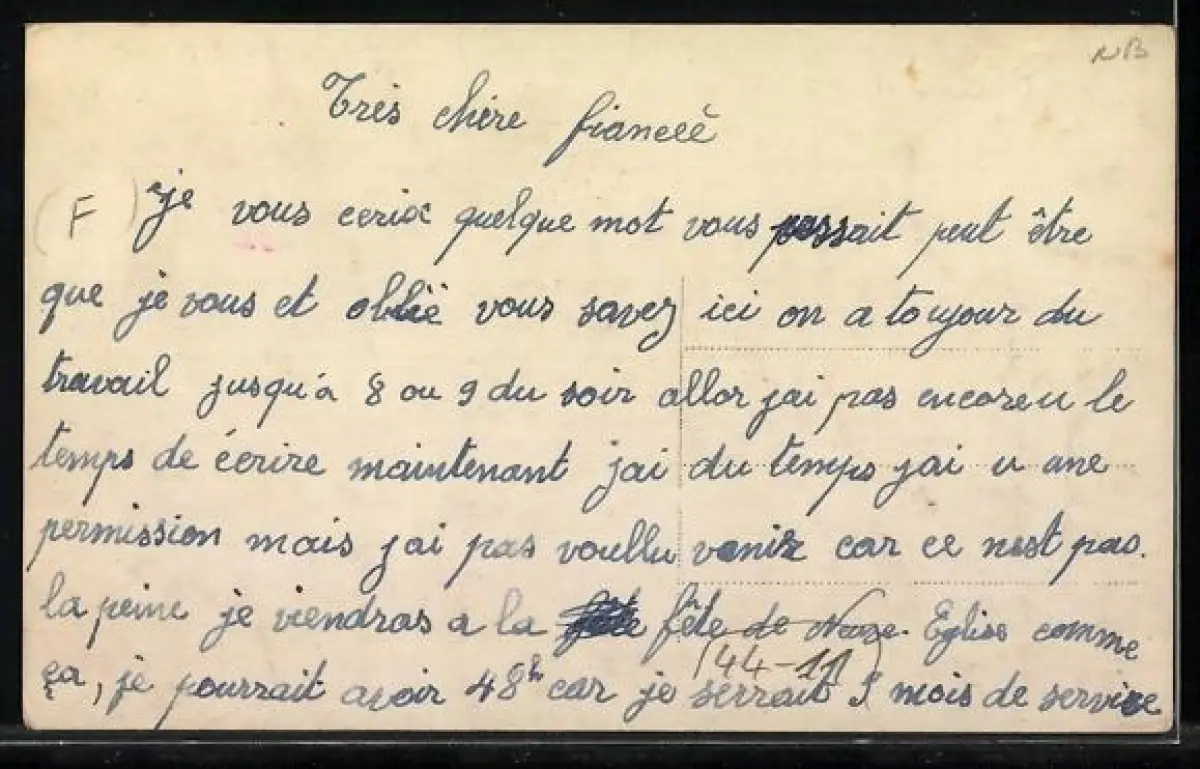 NB
Très chère fianceé
(F) je vous ecrix quelque mot vous pessait peut être
que je vous et oblié vous savez ici on a toujour du
travail jusqu'à 8 ou 9 du soir allor jai pas encore u le
temps de écrire maintenant jai du temps jai u une
permission mais jai pas voullu venir car ce nest pas
la peine je viendras a la fête de Noize. Eglise comme
(44-11)
ça, je pourrait avoir 48h car je serrait 5 mois de service